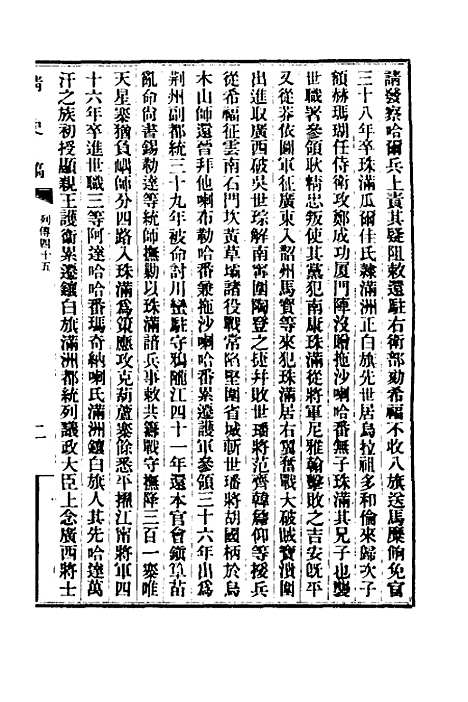 請發察哈爾兵上責其疑阻敕還駐右衛部劾希福不收八旗送馬糜餉免官
三十八年卒珠滿瓜爾佳氏隸滿洲正白旗先世居烏拉祖多和倫來歸次子
額赫瑪瑚任侍衛攻鄭成功厦門陣沒贈拖沙喇哈番無子珠滿其兄子也襲
世職署參領耿精忠叛使其黨犯南康珠滿從將軍尼雅翰擊敗之吉安旣平
又從莽依圖軍征廣東入韶州馬寶等來犯珠滿居右翼奮戰大破賊寶潰圍
出進取廣西破吳世琮解南寧圍陶登之捷幷敗世璠將范齊韓詹仰等援兵
從希福征雲南石門坎黃草壩諸役戰常陷堅圍省城斬世璠將胡國柄於烏
木山師還晉拜他喇布勒哈番兼拖沙喇哈番累遷護軍參領三十六年出爲
荆州副都統三十九年被命討川蠻駐守鴉隴江四十一年還本官會鎭筸苗
亂命尚書錫勒達等統師撫勒以珠滿諳兵事敕共籌戰守撫降三百一寨唯
天星寨猶負嵎師分四路入珠滿爲策應攻克葫蘆寨餘悉平擢江甯將軍四
十六年卒進世職三等阿達哈哈番瑪奇納喇氏滿洲鑲白旗人其先哈達萬
汗之族初授顯親王護衛累遷鑲白旗滿洲都統列議政大臣上念廣西將士
清史稿
列傳四十五
二